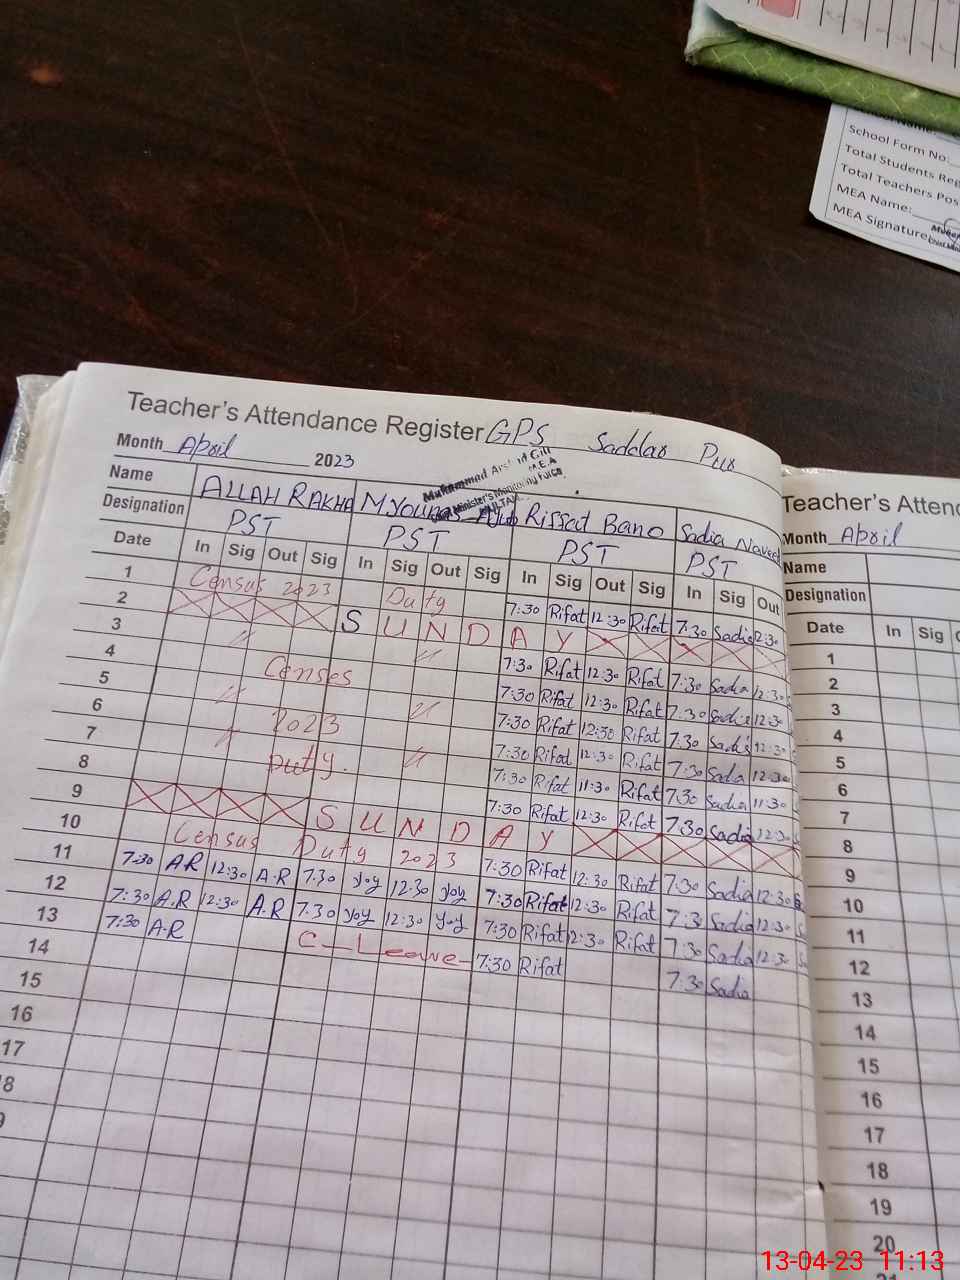 School Form No:
Total Students Reg
Total Teachers Pos
MEA Name:
MEA Signature:
Teacher's Attendance Register GPS Saddar Pur
Month April 2023
Muhammad Arshad Gill
M.E.A
Chief Minister's Monitoring Force
MULTAN
Name ALLAH RAKHA M. Younas Ayub Rissat Bano Sadia Naveed
Designation PST PST PST PST
Date In Sig Out Sig In Sig Out Sig In Sig Out Sig In Sig Out
1 Census 2023 Duty 7:30 Rifat 12:30 Rifat 7:30 Sadia 12:30
2 S U N D A Y
3 " " 7:30 Rifat 12:30 Rifat 7:30 Sadia 12:30
4 Censes 7:30 Rifat 12:30 Rifat 7:30 Sadia 12:30
5 " " 7:30 Rifat 12:30 Rifat 7:30 Sadia 12:30
6 2023 7:30 Rifat 12:30 Rifat 7:30 Sadia 12:30
7 " Duty. " 7:30 Rifat 11:30 Rifat 7:30 Sadia 11:30
8 7:30 Rifat 12:30 Rifat 7:30 Sadia 12:30
9 S U N D A Y
10 Census Duty 2023 7:30 Rifat 12:30 Rifat 7:30 Sadia 12:30
11 7:30 AR 12:30 A-R 7.30 yoy 12:30 yoy 7:30 Rifat 12:30 Rifat 7:30 Sadia 12:30
12 7:30 A.R 12:30 A.R 7.30 yoy 12:30 yoy 7:30 Rifat 12:30 Rifat 7:30 Sadia 12:30
13 7:30 A.R C-Leave- 7:30 Rifat 7:30 Sadia
14
15
16
17
Teacher's Atten
Month April
Name
Designation
Date In Sig
1
2
3
4
5
6
7
8
9
10
11
12
13
14
15
16
17
18
19
20
13-04-23 11:13